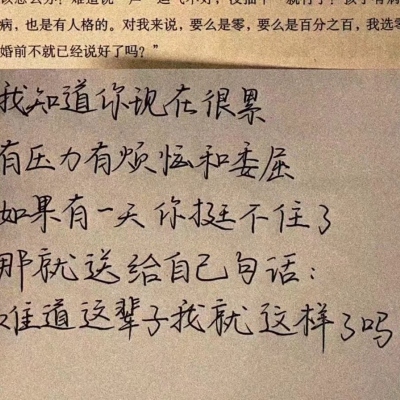 病，也是有人格的。对我来说，要么是零，要么是百分之百，我选零
婚前不就已经说好了吗？”
我知道你现在很累
有压力有烦恼和委屈
如果有一天你挺不住了
那就送给自己句话：
难道这辈子我就这样了吗